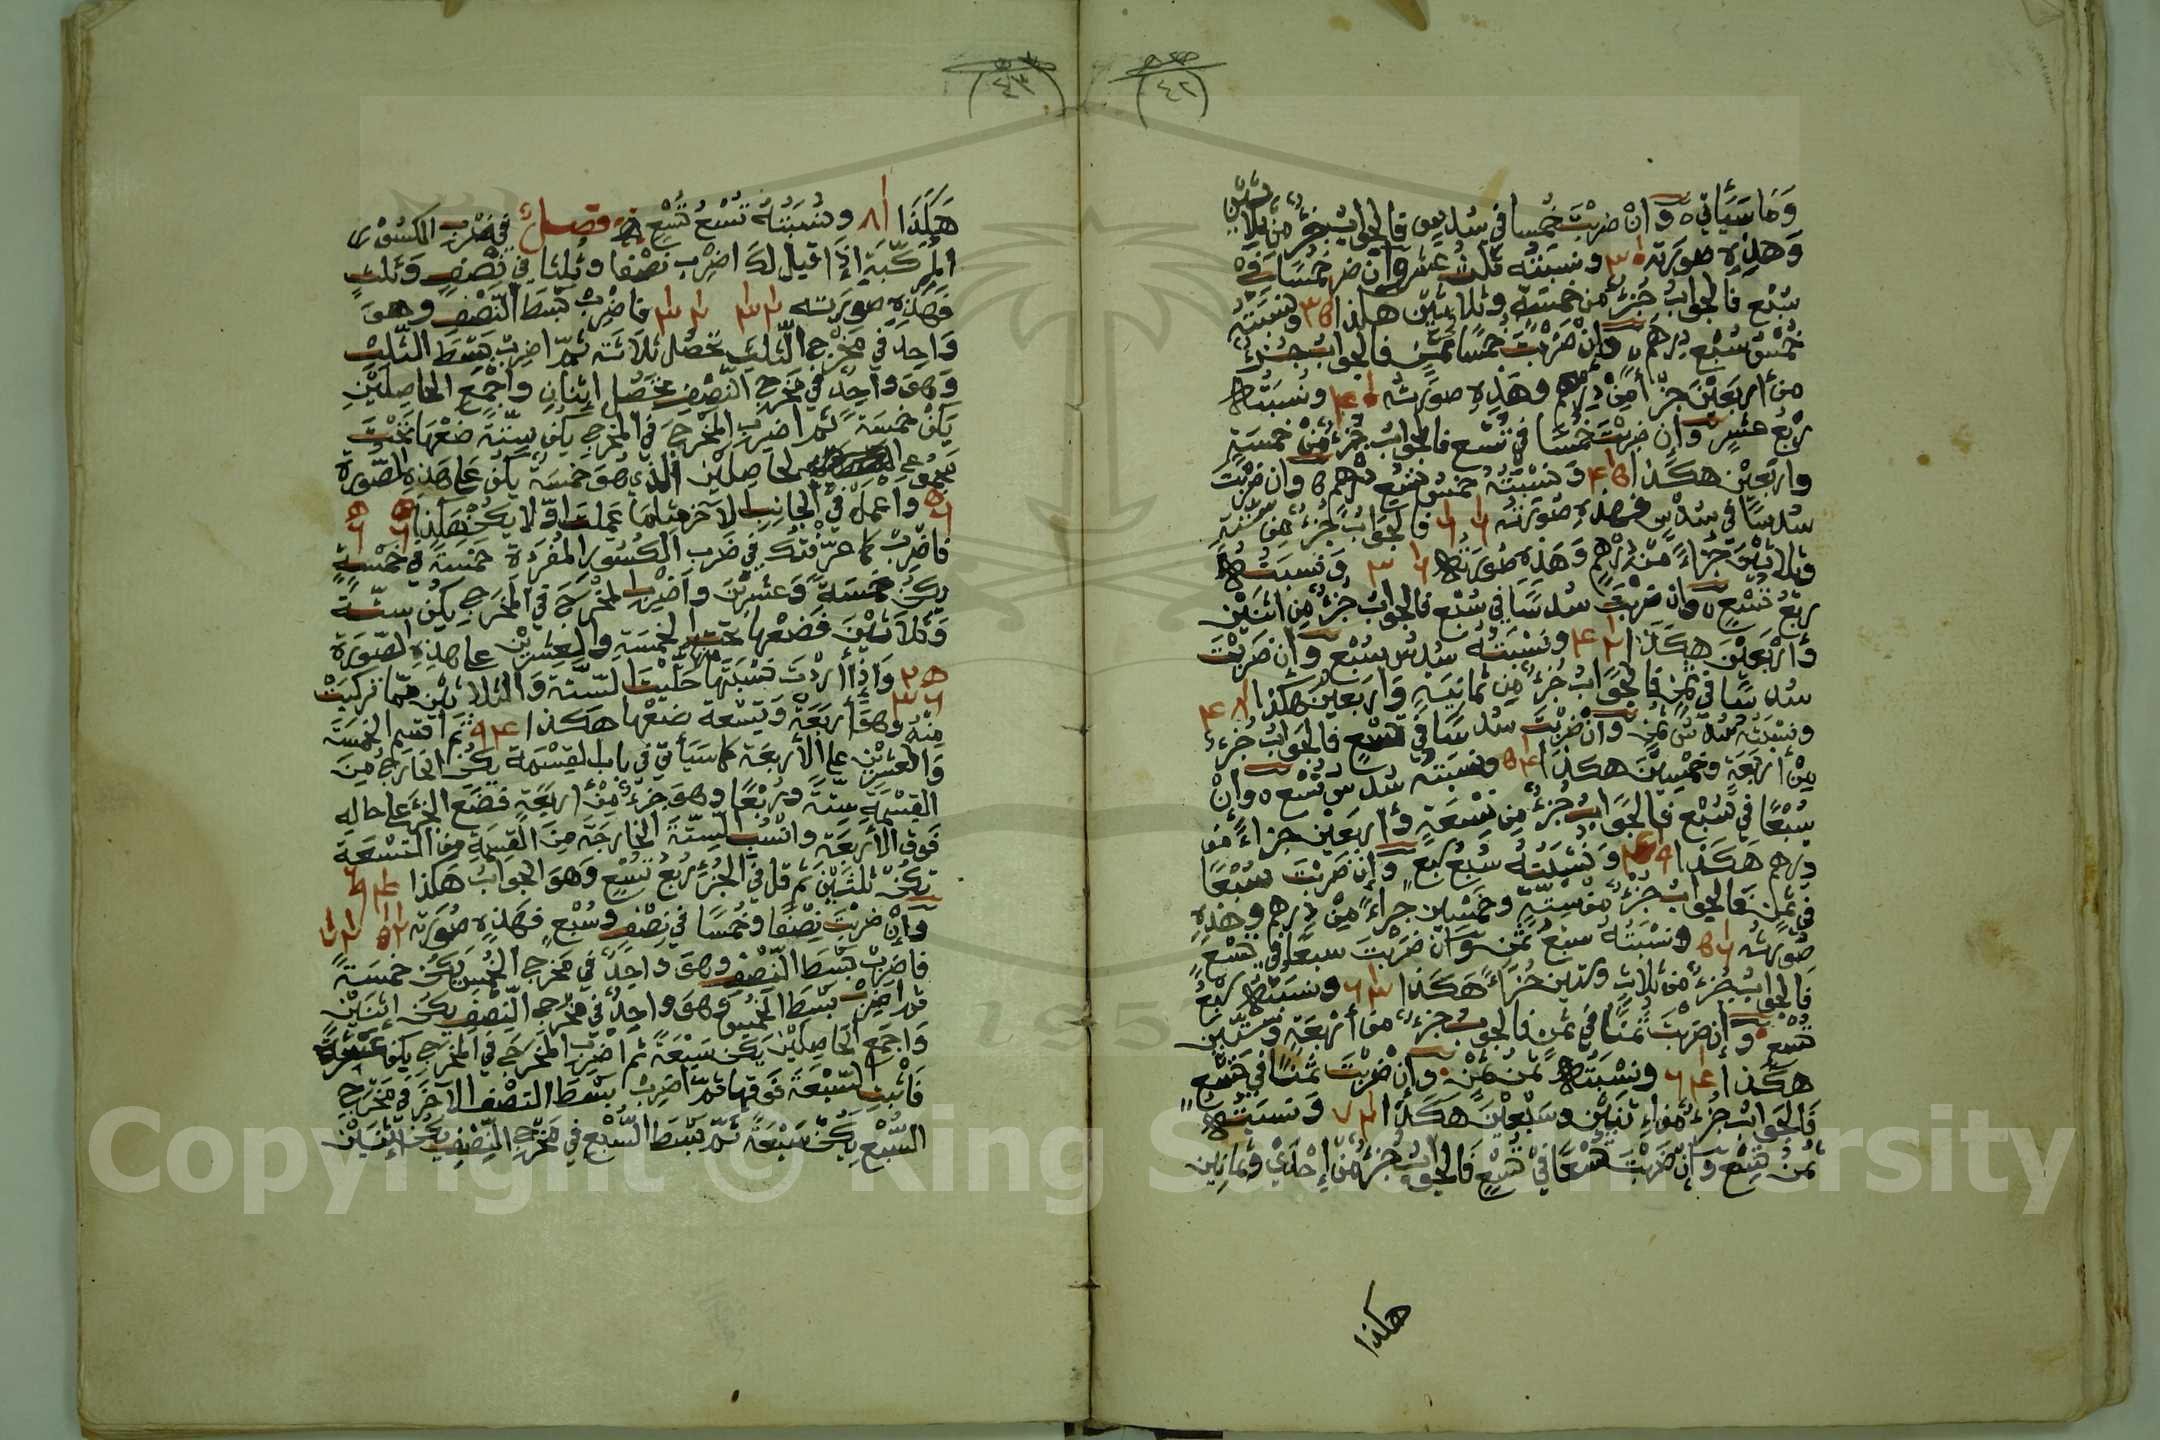 ٤٢
وَمَا سَيَأتي ه وَانْ ضربْتَ خُمسا في سُدسٍ فالجوابُ جزءٌ من ثلاثين
وَهَذِه صورَته ٣٠ ونسبَتُه ثلث عشر وان ضربت خمسًا في
سُبْعٍ فالجوابُ جُزءٌ من خمسَة وثلاثين هكذا ٣٥ ونسبَتُه
خُمْسُ سُبْع دِرهم ه وإنْ ضرْبتَ خُمسًا في ثمن فالجوابُ جزءٌ
من أربعَيْنَ جزأ مِنْ دِرْهم وهَذِهِ صورَتُه ٤٠ ونسبَتُه
رُبع عشر وَإن ضربْتَ خُمسًا في تُسْع فالجوابُ جُزءٌ مِنْ خمسَة
واربَعيْن هكَذا ٤٥ وَنسبَتُهُ خمسُ تسْع دِرْهم ه وان ضربْتَ
سُدسًا في سُدْسٍ فهذه صُورَتُه ١ ١ ٦ ٦ فالجَوابُ جُزءٌ من ستة
وثلاثيْنَ جُزءاً مِنْ دِرْهمٍ وَهَذه صُورَتُه ٣٦ وَنسبَتُه
ربْعُ تُسْعٍ ه وان ضربْتَ سُدسًا في سُبْع فالجوابُ جُزءٌ مِن اثنَيْن
وأرْبَعيْن هكَذَا ٤٢ ونسْبَتُه سُدسُ سُبْع وإن ضربْتَ
سُدسًا في ثمن فالجَوابُ جُزءٌ مِن ثمانيَةٍ وَاربعَين هكَذا ٤٨
ونسْبَتُه سُدسُ ثمُنٍ وانْ ضربْتَ سدسًا في تسْعٍ فالجوابُ جُزءٌ
مِنْ أربَعَةٍ وخمْسينَ هكذَا ٥٤ ونسبَتُه سُدس تسْع ه وإنْ
سُبْعًا في سُبْعٍ فالجَوابُ جُزءٌ مِن تسْعَةٍ وأربعَيْن جزاءً من
درهم هَكَذا ٤٩ وَنسْبَتُهُ سُبعُ سُبع وإن ضربْتَ سُبْعًا
في ثمنٍ فالجوابُ جُزءٌ مِنْ ستّةٍ وخمْسين جزاءً مِن دِرهم وهَذِه
صُورَتُه ٥٦ ونسْبَتُه سُبعُ ثمنٍ وَان ضربْتَ سبعًا في تسْع
فَالجوابُ جُزءٌ مِن ثلاثٍ وستين جُزءاً هكَذا ٦٣ ونسبَتُه سُبْعُ
تُسْع وإن ضربْتَ ثمنًا في ثمن فالجوابُ جزءٌ من أرْبَعَةٍ وستّين
هكَذَا ٦٤ ونسْبَتُه ثمنُ ثمْنٍ وإنْ ضربْتَ ثمُنًا في تسْع
فَالجوَابُ جزءٌ من إثنَيْن وسَبْعيْنَ هكَذَا ٧٢ وَنسبَتُه
ثمُنُ تسْع وإنْ ضربْتَ تُسْعًا فيْ تُسْعٍ فَالجوَابُ جُزءٌ مِن إحْدَى وثمانين
هكذا
٤٣
هَكَذَا ٨١ ونسْبَتُهُ تُسْعُ تُسْعٍ فصل في ضَرْبِ الكسُوْر
المُركّبَةِ إذَا قيلَ لكَ اضرْب نصْفا وثُلثا في نِصْفٍ وَثلثٍ
فَهَذِهِ صورَته فاضرِبْ بسْطَ النّصْفِ وهوَ
وَاحِد في مَخْرج الثّلثِ تحصُل ثلاثَة ثمّ اضرِبْ بسْطَ الثّلثِ
وَهوَ واحِدٌ في مخْرج النّصْفِ تحصُل إثنَانِ وأجْمَع الحاصِلَيْنِ
يَكُن خمْسَة ثمّ اضرِب المَخْرجَ في المخْرج يكُن ستّة ضعْهَا تحْتَ
مجموع الحاصِلَيْن الّذي هُوَ خمْسَة يكُن عَلى هذه الصّورَة
٥ ٦ وَاعْمَل في الجانبِ الآخَر مثلَ مَا عَملتَ اوّلا يكُن هَكذا ٥ ٥ ٦ ٦
فاضرِبْ كما عرّفْتُكَ في ضَرْب الكُسُورِ المُفْرَدة خمْسَةً في خمْسَةٍ
يكُن خمْسَةً وَعشرْينَ واضرْبِ المَخْرَجَ في المخْرَج يكُن ستّةً
وَثلاثيْنَ فَضعْها تحْتَ الخمْسَةِ والعشريْن على هذِه الصّورَة
٢٥ ٣٦ وَإذا أرَدْتَ نسْبَتَها حَلّيْتَ السّتّةَ وَالثلاثيْن ممّا تركبَتْ
مِنْهُ وهوَ أربَعَةٌ وَتِسْعَة ضعْها هكَذا ٤ ٩ ثمّ اقسم الخمْسَةَ
وَالعشْريْن على الأربَعَة كما سَيَأتي في باب القِسْمة يَكُن الخارجُ مِنَ
القسْمَة ستّةً ورُبْعًا وهوَ جزءٌ مِنْ أربَعَةٍ فضَع الجزء على حاله
فَوقَ الأربَعَة وانسُب السّتّةَ الخارجَةَ مِنَ القِسمَة من التّسْعَة
تكُن ثلثَيْن ثمّ قل في الجُزء رُبعُ تُسْع وَهوَ الجَوابُ هَكذا
وَإنْ ضربْتَ نِصْفًا وخُمسًا في نصْفٍ وسُبْعٍ فهَذه صُورَته
فاضرِبْ بسْطَ النّصْفِ وهوَ واحِدٌ في مَخرج الخُمس يَكُن خمسَة
ثمّ اضرِبْ بسْطَ الخُمس وَهوَ واحِدٌ في مخْرج النّصْفِ يكُن اثنَيْن
وَاجمَع الحاصِليْن يَكُن سَبْعَةً ثم اضرِب المَخرجَ في المَخرج يكن عشرَةً
فَأثبت السّبْعَةَ فَوقها ثمّ اضرِبْ بسْطَ النّصْف الآخَر في مَخرج
السُّبْع يَكُنْ سَبْعَةً ثمّ بسْطَ السُّبْع في مَخْرج النّصْف يكُن اثنَيْن
Copyright © King Saud University
1957